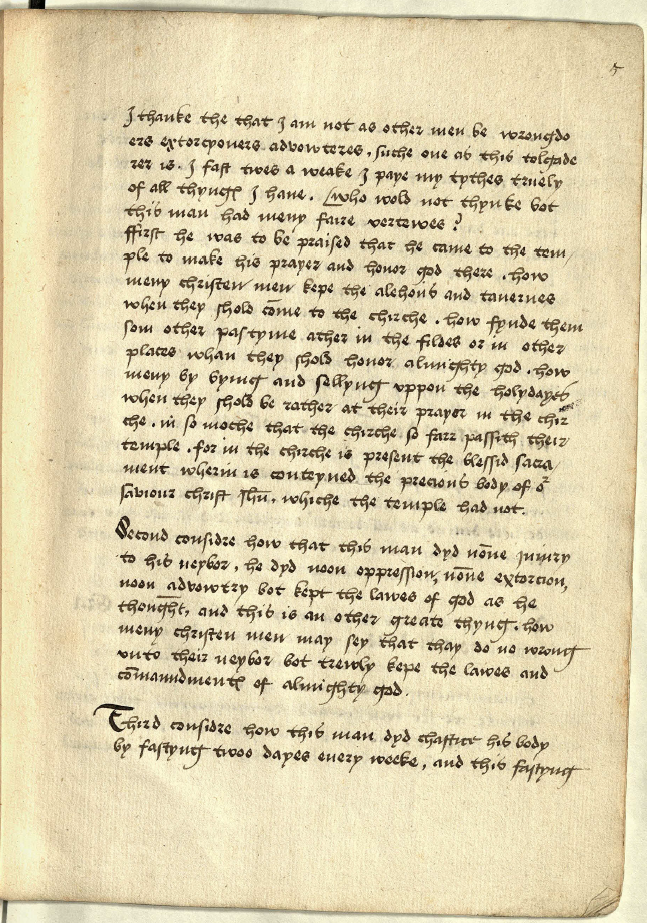 5
I thanke the that I am not as other men be wrongdo
ers extorcyoners advowteres, suche one as this tolgade
rer is. I fast twes a weake I paye my tythes truely
of all thyngꝭ I have. Who wold not thynke bot
this man had meny faire vertewes?
ffirst he was to be praised that he came to the tem/
ple to make his prayer and honor god there. how
meny christen men kepe the alehous and tavernes
when they shold cōme to the chirche. how fynde them
som other pastyme ather in the fildes or in other
places whan they shold honor almighty god. how
meny by bying and sellyng uppon the holydayes
when they shold be rather at their prayer in the chir
che. in so moche that the chirche so farr passith their
temple. for in the chirche is present the blessid sacra
ment wherin is conteyned the precious body of oʳ
saviour christ Ihū. whiche the temple had not.
Second considre how that this man dyd nōne iniury
to his neybor, he dyd noon oppression, nōne extorcion,
noon advowtry bot kept the lawes of god as he
thought, and this is an other greate thyng. how
meny christen men may sey that thay do no wrong
unto their neybor bot trewly kepe the lawes and
cōmaundmentꝭ of almighty god.
Third considre how this man dyd chastice his body
by fastyng twoo dayes every weeke, and this fastyng